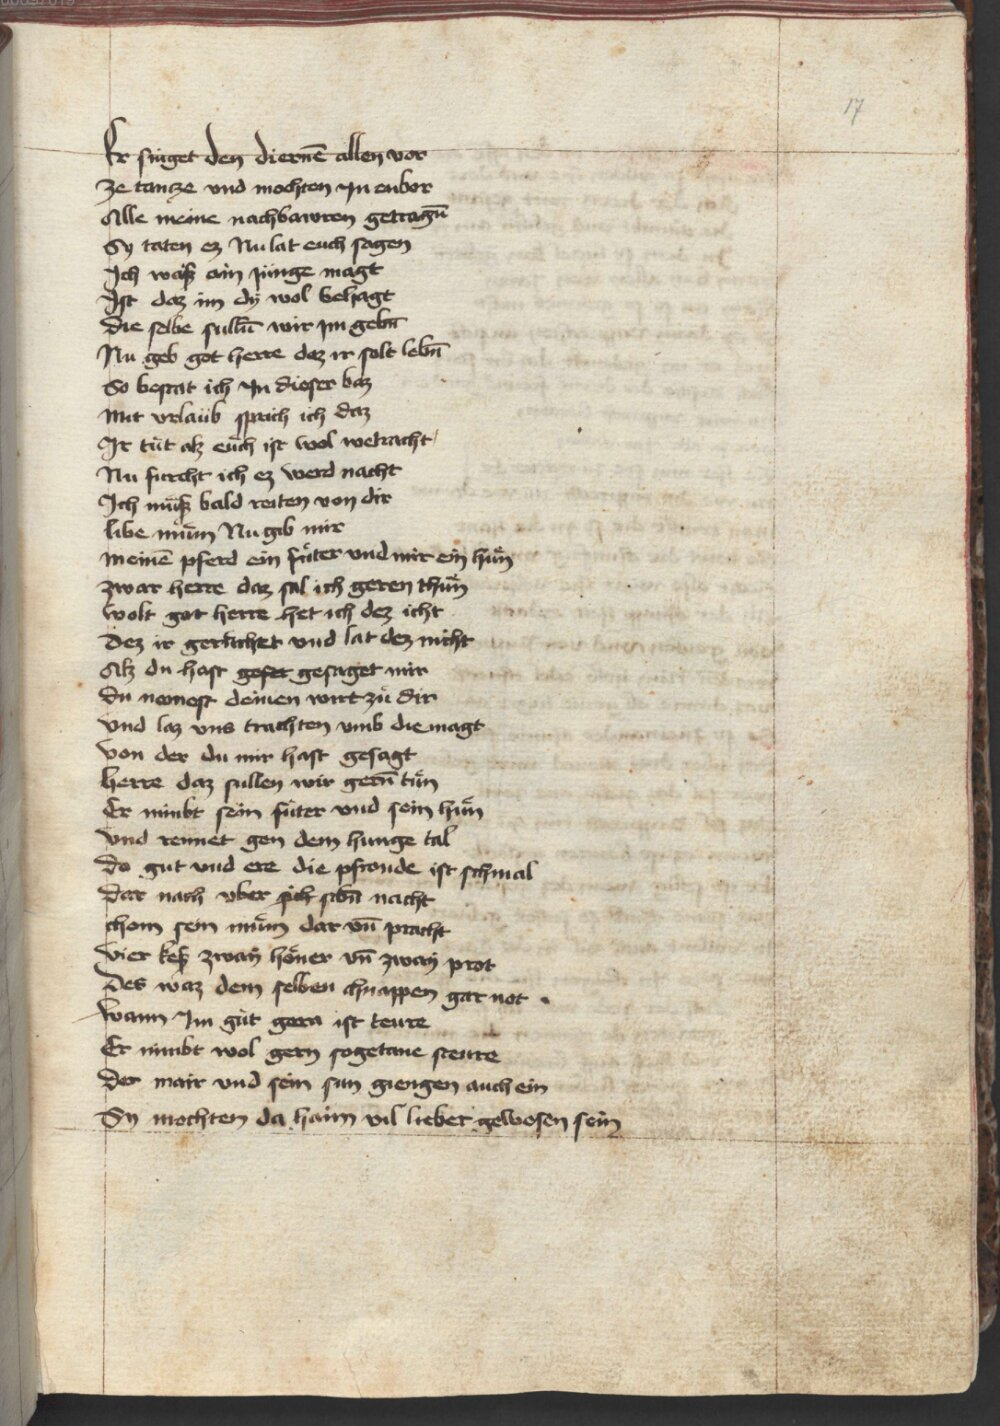 17
Er singet den diernē allen vor
ze tancze vnd mochten In enbor
Alle meine nachbawren getragn̄
Sy taten ez Nu lat euch sagen
Ich wais ain junge magt
Ist daz im dy wol behagt
die selbe sulln̄ wir im gebn̄
Nu geb got herre daz ir solt lebn̄
So bestat ich In dieser baz
Mit vrlaub sprich ich daz
Ir tůt alz euch ist wol wetracht
Nu furcht ich ez werd nacht
Ich můs bald reiten von dir
libe mům Nu gib mir
meinē pferd ein fůter vnd mir ein hůn
zwar herre daz sal ich geren thůn
wolt got herre het ich dez icht
dez ir geruchet vnd lat dez nicht
Alz du hast gesagt mir
du nemest deinen wirt zů dir
vnd laz vns trachten vmb die magt
von der du mir hast gesagt
herre daz sullen wir gern̄ tůn
Er nimbt sein fůter vnd sein hůn
vnd rennet gen dem hunge tal
do gut vnd ere die pfronde ist schmal
dar nach vber sibn̄ nacht
chom sein mům dar vn̄ pracht
vier kes zway höner vn̄ zway prot
des waz dem selben chnappen gar not
wann Im gůt gern ist teure
Er nimbt wol gern sogetane steure
der mair vnd sein sun giengen auch ein
Sy mochten da haim vil lieber gewosen sein